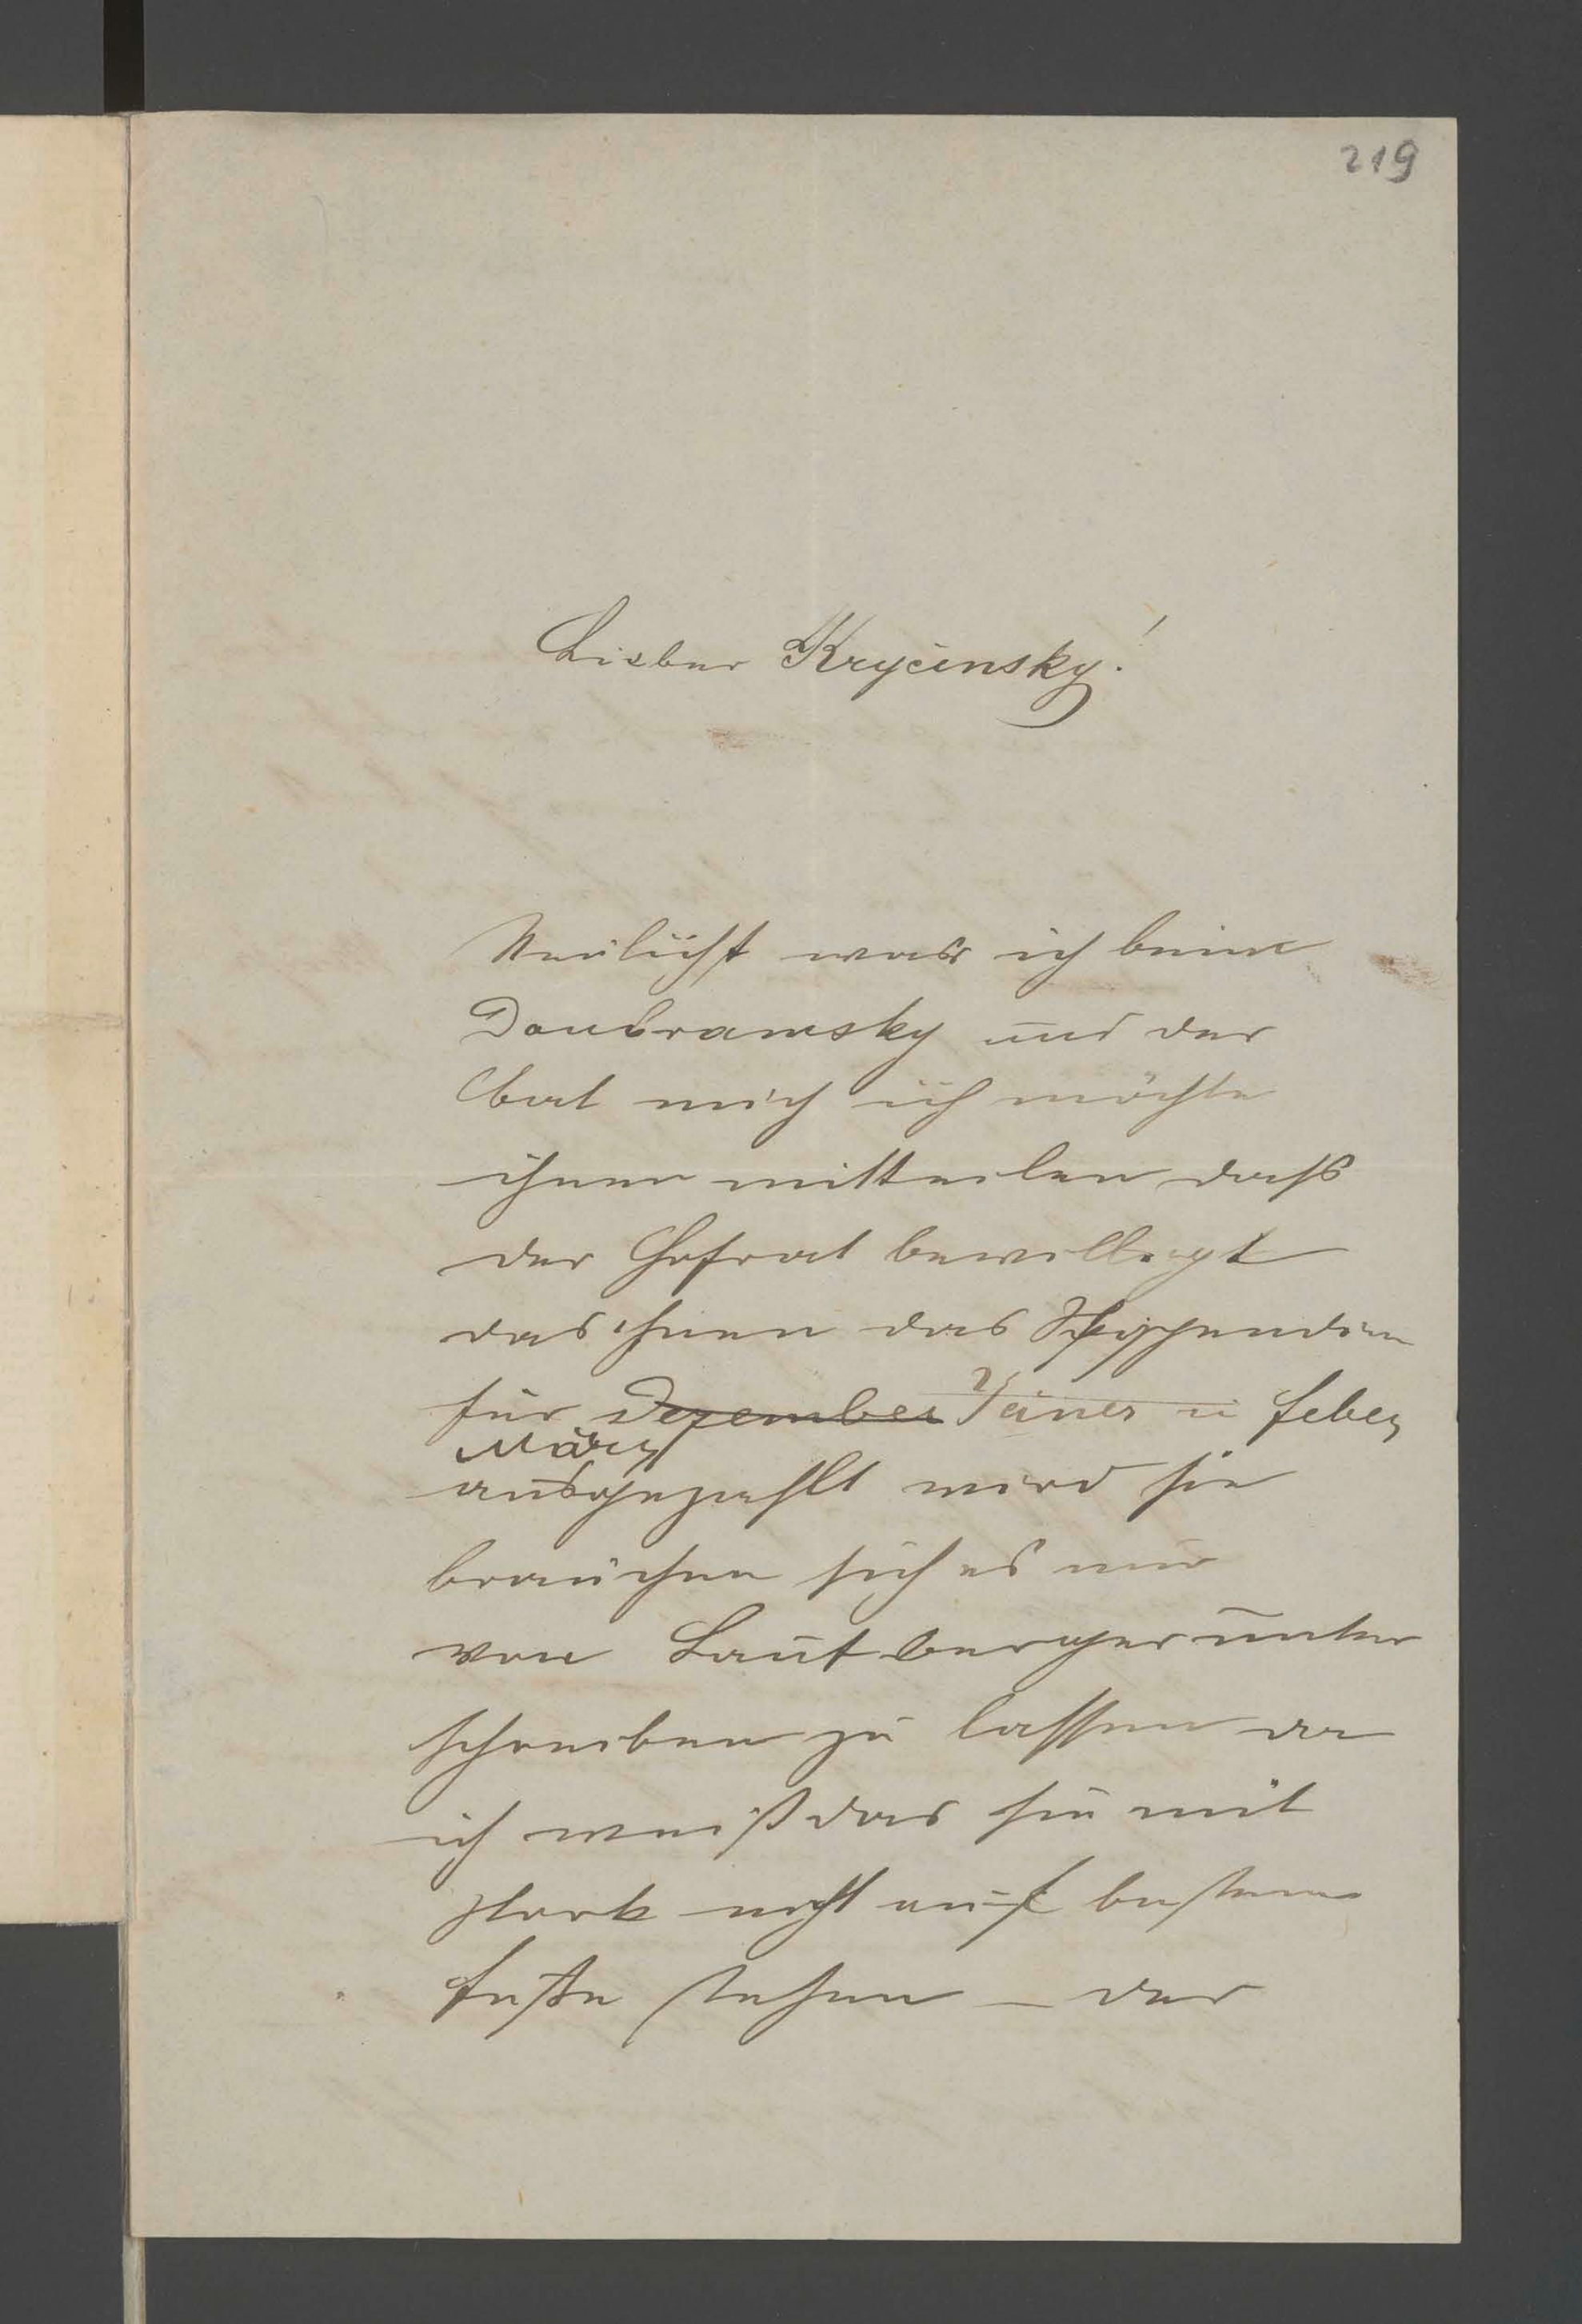 219
Lieber Kryčinsky!
Neulichst war ich beim
Doubrawsky und der
bat mich ich möchte
ihnen mitteilen dass
der Hofrat bewilligt
das ihnen das Stipendium
für Dezember Jäner u feber
März
ausgezahlt wird sie
brauchen sich es nur
von Lautberger unter
schreiben zu lassen da
ich weiß das sie mit
stark nicht auf bestem
fuße stehen – der